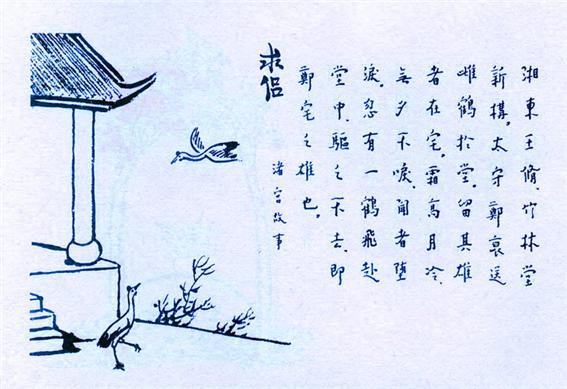 湘東王脩、竹林堂
新構。太守鄭裒送
雌鶴於堂。留其雄
者在宅。霜高月冷、
無夕不唳。聞者墮
淚。忽有一鶴飛赴
堂中、驅之不去、即
鄭宅之雄也。
求侶
渚宮故事